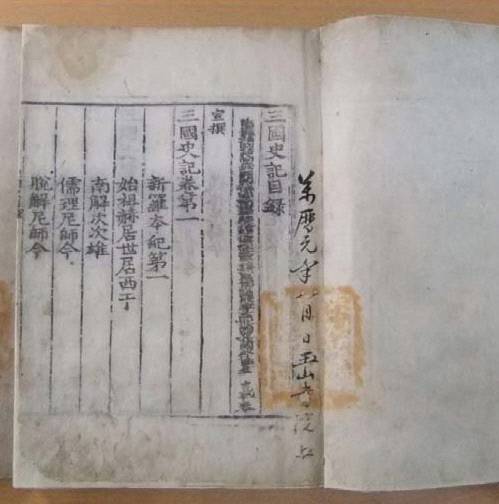 萬曆元年八月日玉山書院上
三國史記目録
宣撰
三國史記卷第一
新羅本紀第一
始祖赫居世居西干
南解次次雄
儒理尼師今
脫解尼師今